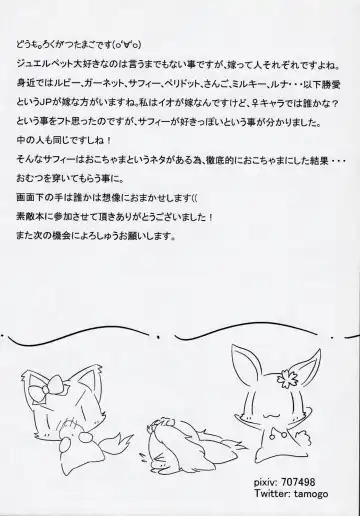 どうも。ろくがつたまごです(o'∀'o)
ジュエルペット大好きなのは言うまでもない事ですが、嫁って人それぞれですよね。
身近ではルビー、ガーネット、サフィー、ペリドット、さんご、ミルキー、ルナ・・・以下勝愛
というJPが嫁な方がいますね。私はイオが嫁なんですけど、♀キャラでは誰かな?
という事をフト思ったのですが、サフィーが好きっぽいという事が分かりました。
中の人も同じですしね!
そんなサフィーはおこちゃまというネタがある為、徹底的におこちゃまにした結果・・・
おむつを穿いてもらう事に。
画面下の手は誰かは想像におまかせします((
素敵本に参加させて頂きありがとうございました!
また次の機会によろしゅうお願いします。
pixiv: 707498
Twitter: tamogo